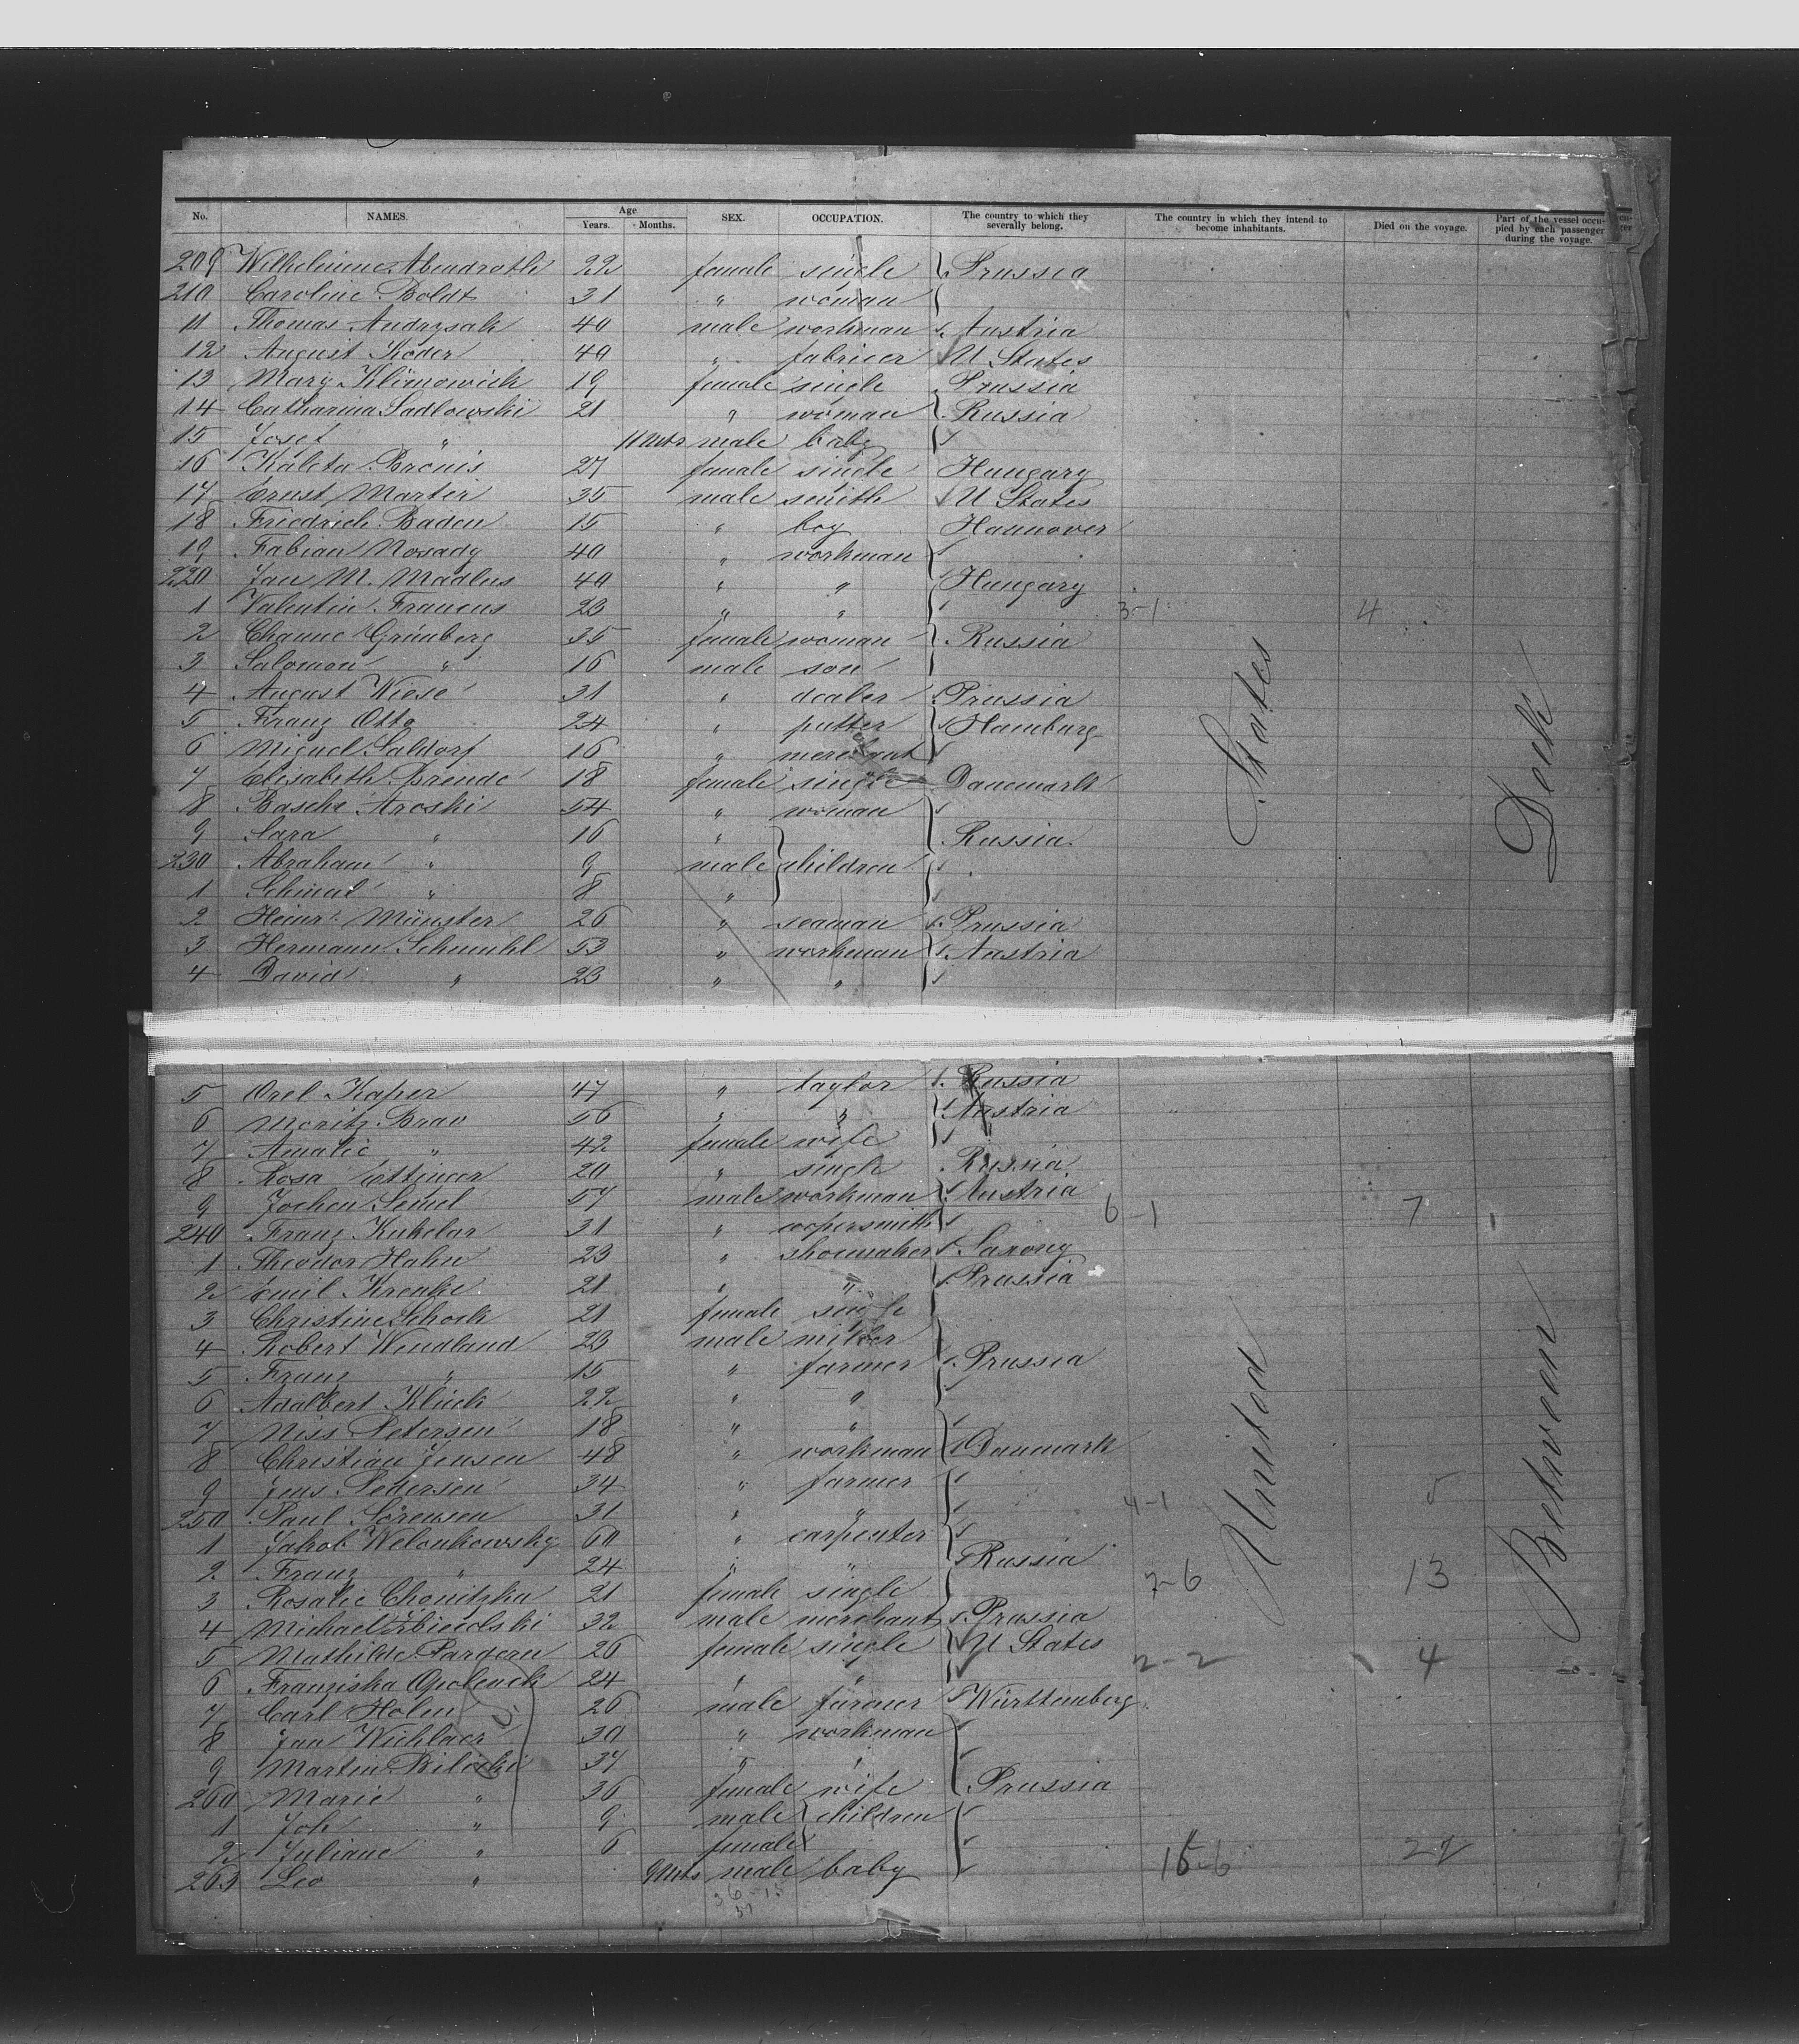 No. NAMES. Age Years. Months. SEX. OCCUPATION. The country to which they severally belong. The country in which they intend to become inhabitants. Died on the voyage. Part of the vessel occupied by each passenger during the voyage.
209 Wilhelmine Abendroth 22 female single } Prussia
210 Caroline Boldt 31 " woman
11 Thomas Andrysak 40 male workman Austria
12 August Köder 40 " fabricer U States
13 Mary Klimowich 19 female single Prussia
14 Catharina Sadlowski 21 " woman } Russia
15 Josef " 11 Mts male baby
16 Kaleta Bronis 27 female single Hungary
17 Ernst Marter 35 male smith U States
18 Friedrich Baden 15 " boy Hannover
19 Fabian Nosady 40 " workman
220 Jan M. Madlus 40 " " Hungary
1 Valentin Francus 23 " " 3-1 4
2 Channe Grünberg 35 female woman } Russia
3 Salomon " 16 male son
4 August Wiese 31 " dealer Prussia
5 Franz Otto 24 " putter } Hamburg
6 Miguel Saldorf 16 " merchant
7 Elisabeth Brende 18 female single Danemark
8 Basche Aroski 54 " woman
9 Sara " 16 " Russia
230 Abraham " 9 male children
1 Schmul " 8 "
2 Heinr. Münster 26 " seaman Prussia
3 Hermann Schmuhl 53 " workman } Austria
4 David " 23 " "
5 Orel Kaper 47 " taylor Russia
6 Moritz Brav 56 " " Austria
7 Amalie " 42 female wife
8 Rosa Ettinger 20 " single Russia
9 Jochen Semel 57 male workman Austria 6-1 7
240 Franz Kukelar 31 " coopersmith
1 Theodor Hahn 23 " shoemaker Saxony
2 Emil Krenke 21 " " Prussia
3 Christine Schock 21 female single
4 Robert Wendland 23 male miller
5 Franz " 15 " farmer Prussia
6 Adalbert Klück 22 " "
7 Niss Petersen 18 " "
8 Christian Jensen 48 " workman Danemark
9 Jens Pedersen 34 " farmer
250 Paul Sörensen 31 " " 4-1 5
1 Jakob Welonkowsky 60 " carpenter
2 Franz " 24 " " Russia
3 Rosalie Chonitzka 21 female single 7-6 13
4 Michael 32 male merchant Prussia
5 Mathilde Pargern 26 female single U States
6 Franziska 24 " " 2-2 4
7 Carl Holm 26 male farmer Württemberg
8 Jan Wichlacz 30 " workman
9 Martin Bilicki 37 " "
260 Marie " 36 female wife Prussia
1 Joh " 9 male children
2 Juliane " 6 female
263 Leo " 9 Mts male baby 15-6 22
United States
Between Deck